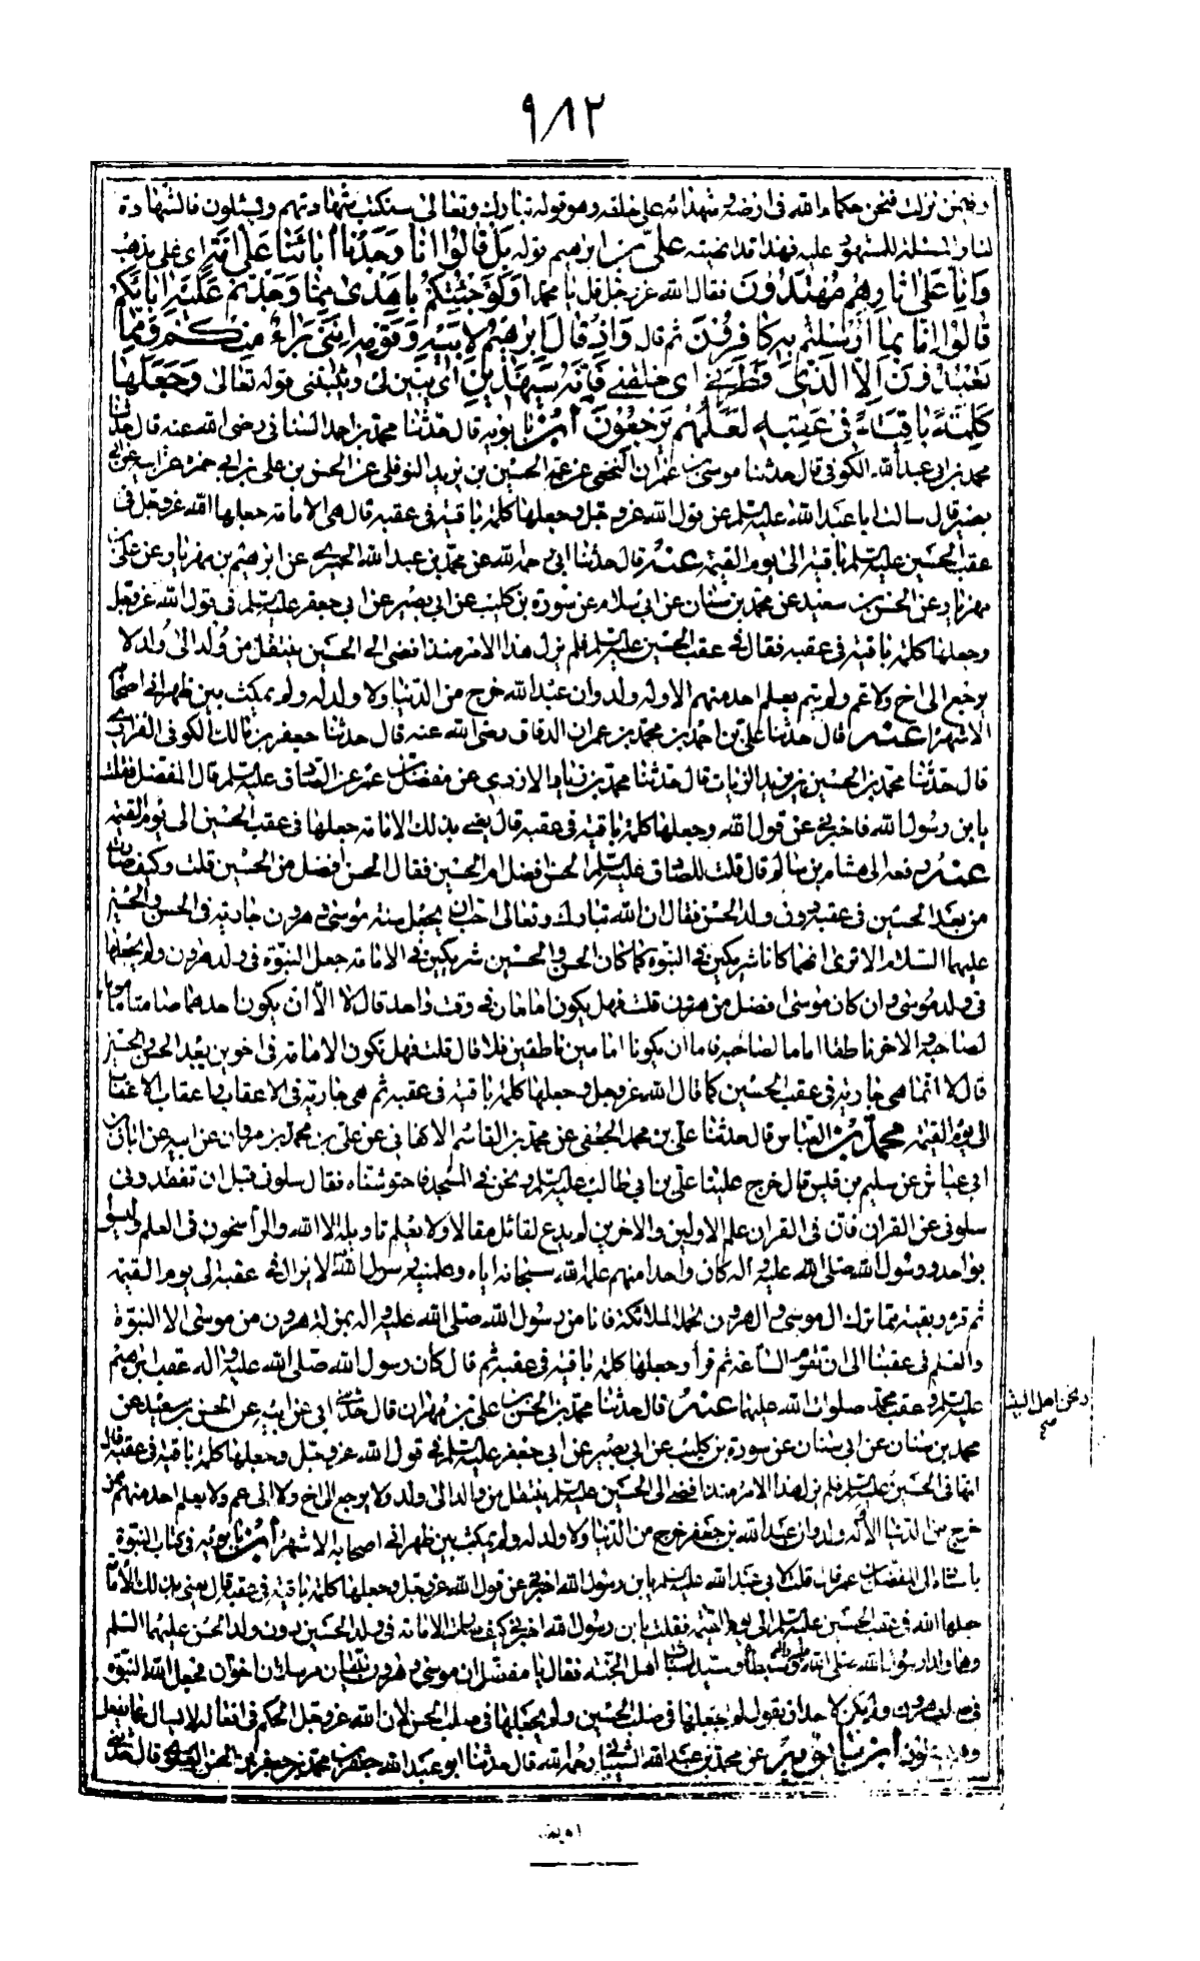 ٩٨٢
وفيمن نزلت فنحن حكماء الله فى ارضه و شهدائه على خلقه وهو قوله تبارك وتعالى ستكتب شهادتهم ويسئلون فالشهادة
لنا والمسئلة للمشهود عليه فهذا قد نصبته على بن ابرهيم قوله بل قالوا انا وجدنا اباءنا على امة اى على مذهب
وانا على اثارهم مهتدون فقال الله عز وجل قل يا محمد اولو جئتكم باهدى مما وجدتم عليه اباءكم
قالوا انا بما ارسلتم به كافرون ثم قال واذ قال ابرهيم لابيه وقومه اننى براء مما
تعبدون الا الذى فطرنى اى خلقنى فانه سيهدين اى يبين لى ويثبتنى قوله تعالى وجعلها
كلمة باقية فى عقبه لعلهم يرجعون ابن بابويه قال حدثنا محمد بن احمد السنانى رضى الله عنه قال حدثنا
محمد بن ابى عبد الله الكوفى قال حدثنا موسى بن عمران النخعى عن عمه الحسين بن يزيد النوفلى عن الحسن بن على بن ابى حمزه عن ابيه عن ابى
بصير قال سالت ابا عبد الله عليه السلم عن قول الله عز وجل وجعلها كلمة باقية فى عقبه قال هى الامامة جعلها الله عز وجل فى
عقب الحسين عليه السلم باقية الى يوم القيمة عنه قال حدثنا ابى رحمه الله عن محمد بن عبد الله الحميرى عن ابرهيم بن مهزيار عن على بن
مهزيار عن الحسن بن سعيد عن محمد بن سنان عن ابى سلام عن سورة بن كليب عن ابى بصير عن ابى جعفر عليه السلم فى قول الله عز وجل
وجعلها كلمة باقية فى عقبه فقال فى عقب الحسين عليه السلم فلم يزل هذا الامر منذ افضى الى الحسين ينتقل من ولد الى ولد لا
يرجع الى اخ ولا عم ولم يتم بعلم احد منهم الا وله ولد وان عبد الله خرج من الدنيا ولا ولد له ولم يمكث بين ظهرانى اصحابه
الا شهرا عنه قال حدثنا على بن احمد بن محمد بن عمران الدقاق رضى الله عنه قال حدثنا جعفر بن مالك الكوفى الفزارى
قال حدثنا محمد بن الحسين بن زيد الزيات قال حدثنا محمد بن زياد الازدى عن مفضل بن عمر عن الصادق عليه السلم قال المفضل فقلت
يا بن رسول الله فاخبرنى عن قول الله وجعلها كلمة باقية فى عقبه قال يعنى بذلك الامامة جعلها فى عقب الحسين الى يوم القيمة
عنه رفعه الى هشام بن سالم قال قلت للصادق عليه السلم الحسن افضل ام الحسين فقال الحسن افضل من الحسين قلت وكيف صارت
من بعد الحسين فى عقبه دون ولد الحسن فقال ان الله تبارك وتعالى احب ان يجعل سنة موسى و هرون جارية فى الحسن والحسين
عليهما السلام الا ترى انهما كانا شريكين فى النبوة كما كان الحسن والحسين شريكين فى الامامة جعل النبوة فى ولد هرون ولم يجعلها
فى ولد موسى وان كان موسى افضل من هرون قلت فهل يكون امامان فى وقت واحد قال لا الا ان يكون احدهما صامتا ماموما
لصاحبه والاخر ناطقا اماما لصاحبه فاما ان يكونا امامين ناطقين فلا قال قلت فهل تكون الامامة فى اخوين بعد الحسن والحسين
قال لا انما هى جارية فى عقب الحسين كما قال الله عز وجل وجعلها كلمة باقية فى عقبه ثم هى جارية فى الاعقاب واعقاب الاعقاب
الى يوم القيمة محمد بن العباس قال حدثنا على بن محمد الجعفى عن محمد بن القاسم الاكفانى عن على بن محمد بن مروان عن ابيه عن ابان بن
ابى عياش عن سليم بن قيس قال خرج علينا على بن ابى طالب عليه السلم ونحن فى المسجد فاحتوشناه فقال سلونى قبل ان تفقدونى
سلونى عن القران فان فى القران علم الاولين والاخرين لم يدع لقائل مقالا ولا يعلم تاويله الا الله والراسخون فى العلم وليسوا
بواحد ورسول الله صلى الله عليه واله كان واحدا منهم علمه الله سبحانه اياه وعلمنيه رسول الله ثم لا يزال فى عقبه الى يوم القيمة
ثم قرء وبقية مما ترك ال موسى وال هرون تحمله الملائكة فانا من رسول الله صلى الله عليه واله بمنزلة هرون من موسى الا النبوة
والعلم فى عقبنا الى ان تقوم الساعة ثم قرأ وجعلها كلمة باقية فى عقبه ثم قال كان رسول الله صلى الله عليه واله عقب ابرهيم
ونحن اهل البيت صح
عليه السلم عقب محمد صلوات الله عليهما عنه قال حدثنا محمد بن الحسن بن على بن مهزيار قال حدثنى ابى عن ابيه عن الحسن بن سعيد عن
محمد بن سنان عن ابى سنان عن سورة بن كليب عن ابى بصير عن ابى جعفر عليه السلم فى قول الله عز وجل وجعلها كلمة باقية فى عقبه قال
انها فى الحسين عليه السلم فلم يزل هذا الامر منذ افضى الى الحسين عليه السلم ينتقل من والد الى ولد ولا يرجع الى اخ ولا الى عم ولا يعلم احد منهم
خرج من الدنيا الا وله ولد وان عبد الله بن جعفر خرج من الدنيا ولا ولد له ولم يمكث بين ظهرانى اصحابه الا شهرا ابن بابويه فى كتاب النبوة
باسناده الى المفضل بن عمر قال قلت لابى عبد الله عليه السلم يا بن رسول الله اخبرنى عن قول الله عز وجل وجعلها كلمة باقية فى عقبه قال يعنى بذلك الامامة
جعلها الله فى عقب الحسين عليه السلم الى يوم القيمة فقلت يا بن رسول الله اخبرنى كيف صارت الامامة فى ولد الحسين دون ولد الحسن عليهما السلم
وهما ولدا رسول الله صلى الله عليه واله وسبطاه وسيدا شباب اهل الجنة فقال يا مفضل ان موسى و هرون نبيان مرسلان اخوان فجعل الله النبوة
فى صلب هرون ولم يكن لاحد ان يقول لم جعلها فى صلب الحسين ولم يجعلها فى صلب الحسن لان الله عز وجل الحكيم فى افعاله لا يسال عما يفعل
وهم يسئلون ابن بابويه عن محمد بن عبد الله الشيبانى رحمه الله قال حدثنا ابو عبد الله جعفر بن محمد بن جعفر بن الحسن العلوى قال حدثنى